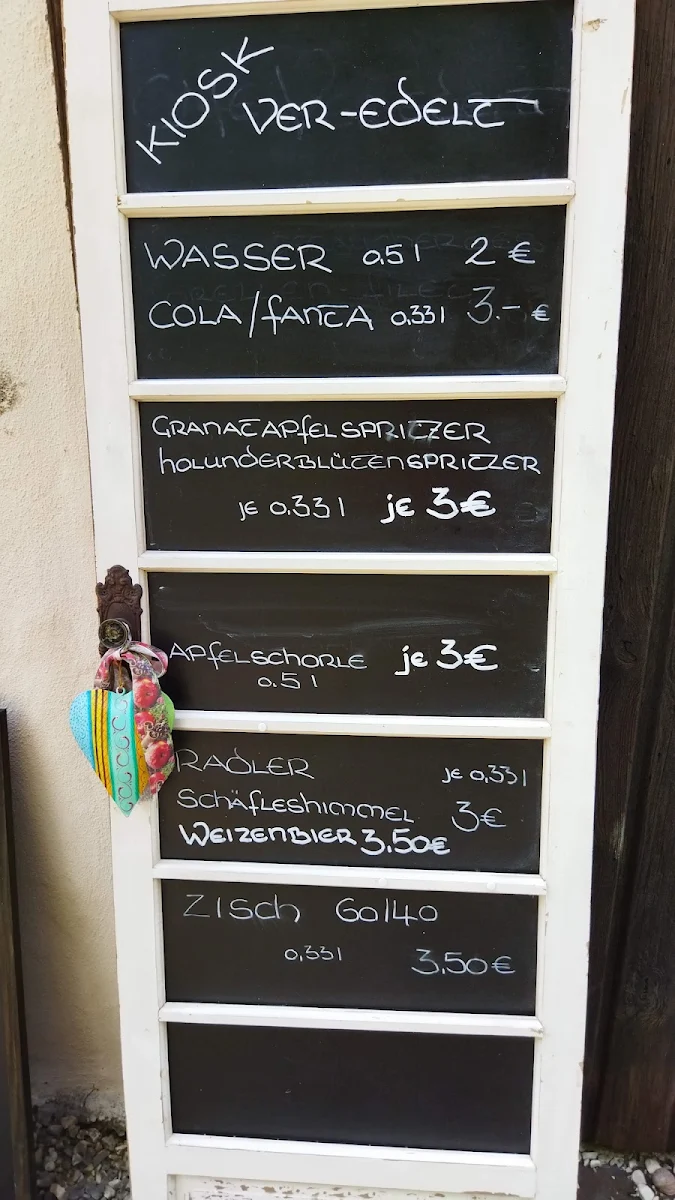 KIOSK VER-EDELT
WASSER 0,5 l 2 €
COLA/FANTA 0,33 l 3.- €
GRANATAPFELSPRITZER
HOLUNDERBLÜTENSPRITZER
je 0,33 l je 3€
APFELSCHORLE je 3€
0.5 l
RADLER je 0,33 l
SCHÄFLESHIMMEL 3€
WEIZENBIER 3,50€
ZISCH 60/40
0,33 l 3,50€